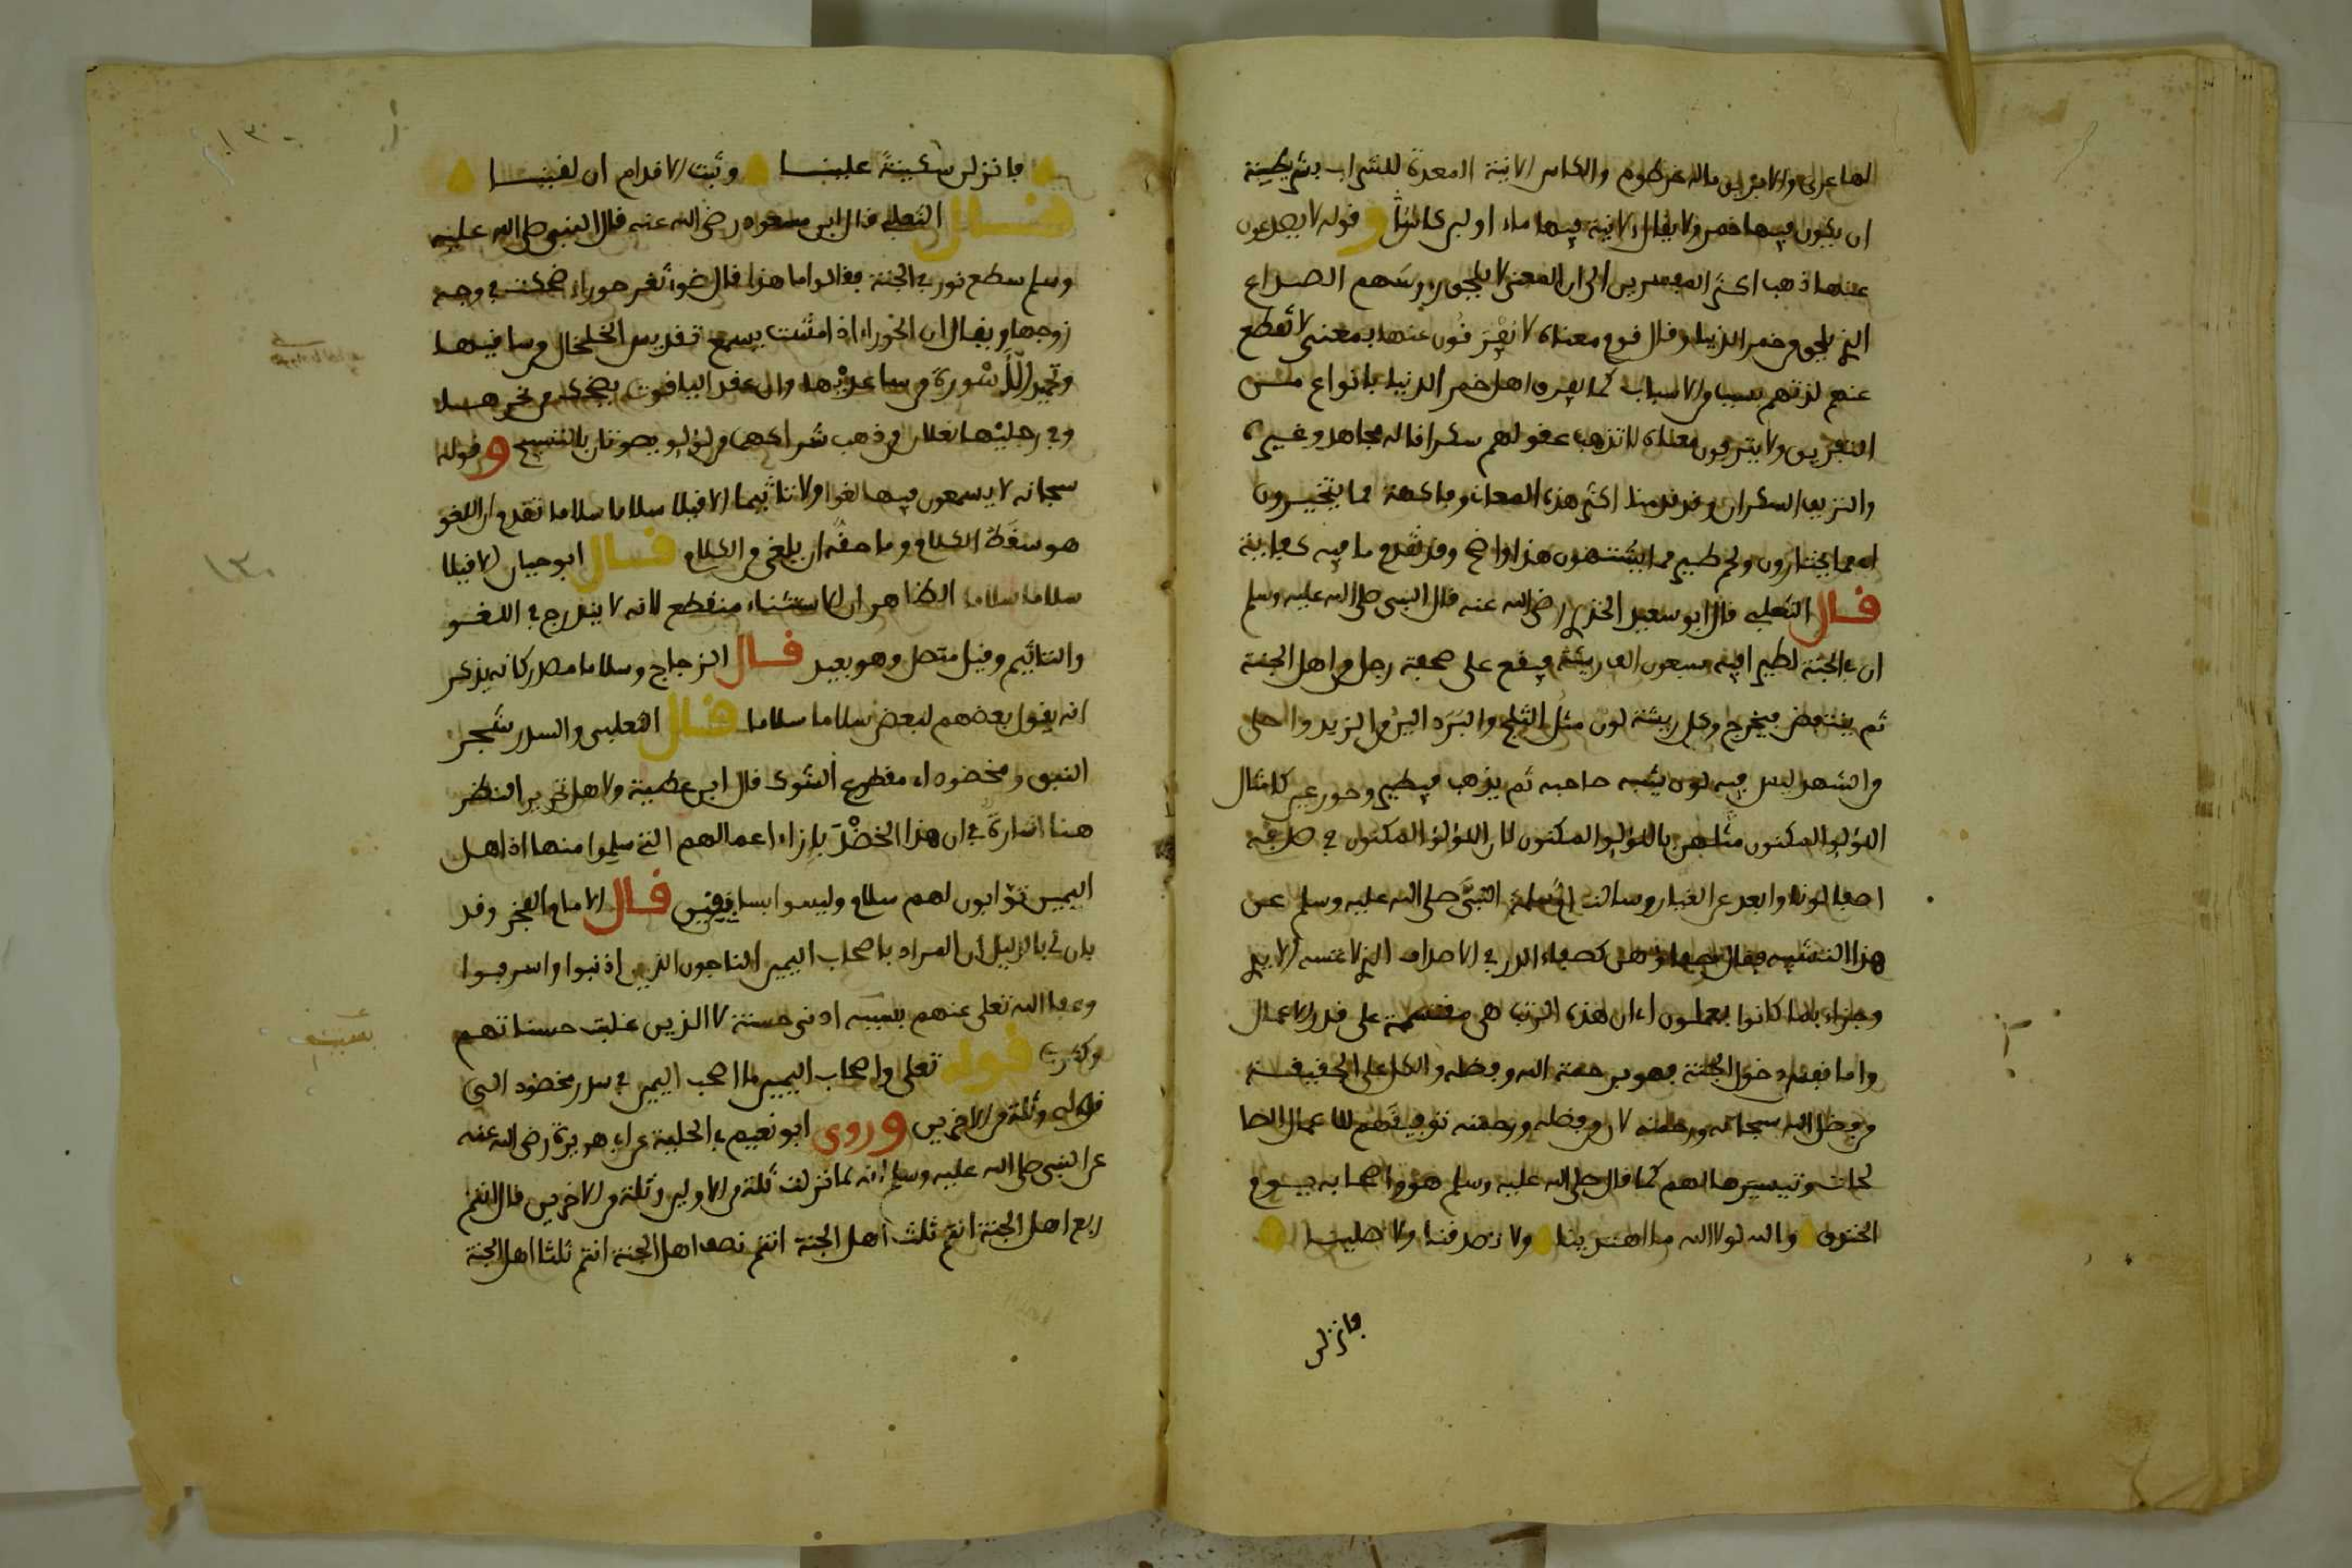 لها عرى والابريق ماله خرطوم والكاس الانية المعدة للشراب بشريطة
ان يكون فيها خمر ولا يقال لانية فيها ماء او لبن كاس وقوله لا يصدعون
عنها ذهب اكثر المفسرين الى ان المعنى لا يلحق رءوسهم الصداع
الذي يلحق من خمر الدنيا وقال قوم معناه لا يفرقون عنها بمعنى لا تقطع
عنهم لذتهم بسبب من الاسباب كما يفرق اهل خمر الدنيا بانواع من
التفريق ولا ينزفون معناه لا تذهب عقولهم سكرا قاله مجاهد وغيره
والنزيف السكران وقد قدمنا اكثر هذه المعاني وفاكهة مما يتخيرون
اي مما يختارون ولحم طير مما يشتهون هذا واضح وقد تقدم ما فيه كفاية
قال الثعلبي قال ابو سعيد الخدري رضي الله عنه قال النبي صلى الله عليه وسلم
ان في الجنة لطيرا فيه سبعون الف ريشة فيقع على صحفة رجل من اهل الجنة
ثم ينتفض فيخرج من كل ريشة لون مثل الثلج والبرد الين من الزبد واحلى
من الشهد ليس فيه لون يشبه صاحبه ثم يذهب فيطير وحور عين كامثال
اللؤلؤ المكنون مثلهن باللؤلؤ المكنون لان اللؤلؤ المكنون في صدفه
اصفى لونا وابعد عن الغبار وسالت ام سلمة النبي صلى الله عليه وسلم عن
هذا التشبيه فقال صفاؤهن كصفاء الدر في الاصداف الذي لا تمسه الايدي
وجزاء بما كانوا يعملون اي ان هذه الرتب هي مقسمة على قدر الاعمال
واما نفس دخول الجنة فهو برحمة الله وفضله والكل على الحقيقة
من فضل الله سبحانه ورحمته لان من فضله ورحمته توفيقهم للاعمال الصا
لحات وتيسيرها لهم كما قال صلى الله عليه وسلم هو واصحابه يوم
الخندق والله لولا الله ما اهتدينا ولا تصدقنا ولا صلينا
فانزلن
فانزلن سكينة علينا وثبت الاقدام ان لقينا
قال الثعلبي قال ابن مسعود رضي الله عنه قال النبي صلى الله عليه
وسلم سطع نور في الجنة فقالوا ما هذا قال ضوء ثغر حوراء ضحكت في وجه
زوجها ويقال ان الحوراء اذا مشت يسمع تقديس الخلخال من ساقيها
وتمجيد الاسورة من ساعديها وان عقد الياقوت يضحك من نحرها
وفي رجليها نعلان من ذهب شراكهما من لؤلؤ يصوتان بالتسبيح وقوله
سبحانه لا يسمعون فيها لغوا ولا تاثيما الا قيلا سلاما سلاما تقدم ان اللغو
هو سقط الكلام وما حقه ان يلغى من الكلام قال ابو حيان الا قيلا
سلاما سلاما الظاهر ان الاستثناء منقطع لانه لا يندرج في اللغو
والتاثيم وقيل متصل وهو بعيد قال الزجاج وسلاما مصدر كانه يذكر
انه يقول بعضهم لبعض سلاما سلاما قال الثعلبي والسدر شجر
النبق ومخضود اي مقطوع الشوك قال ابن عطية ولاهل تحرير النظر
هنا اشارة في ان هذا الخضد بازاء اعمالهم التي سلموا منها اذ اهل
اليمين توابون لهم سلام وليسوا بسابقين قال الامام الفخر وقد
بان لي بالدليل ان المراد باصحاب اليمين الناجون الذين اذنبوا واسرفوا
وعفا الله تعلى عنهم بسبب ادنى حسنة لا الذين غلبت حسناتهم
وكثرت قوله تعلى واصحاب اليمين ما اصحب اليمين في سدر مخضود الى
قوله وثلة من الاخرين وروى ابو نعيم في الحلية عن ابي هريرة رضي الله عنه
عن النبي صلى الله عليه وسلم انه لما نزلت ثلة من الاولين وثلة من الاخرين قال انتم
ربع اهل الجنة انتم ثلث اهل الجنة انتم نصف اهل الجنة انتم ثلثا اهل الجنة
١٣٠
بسبب